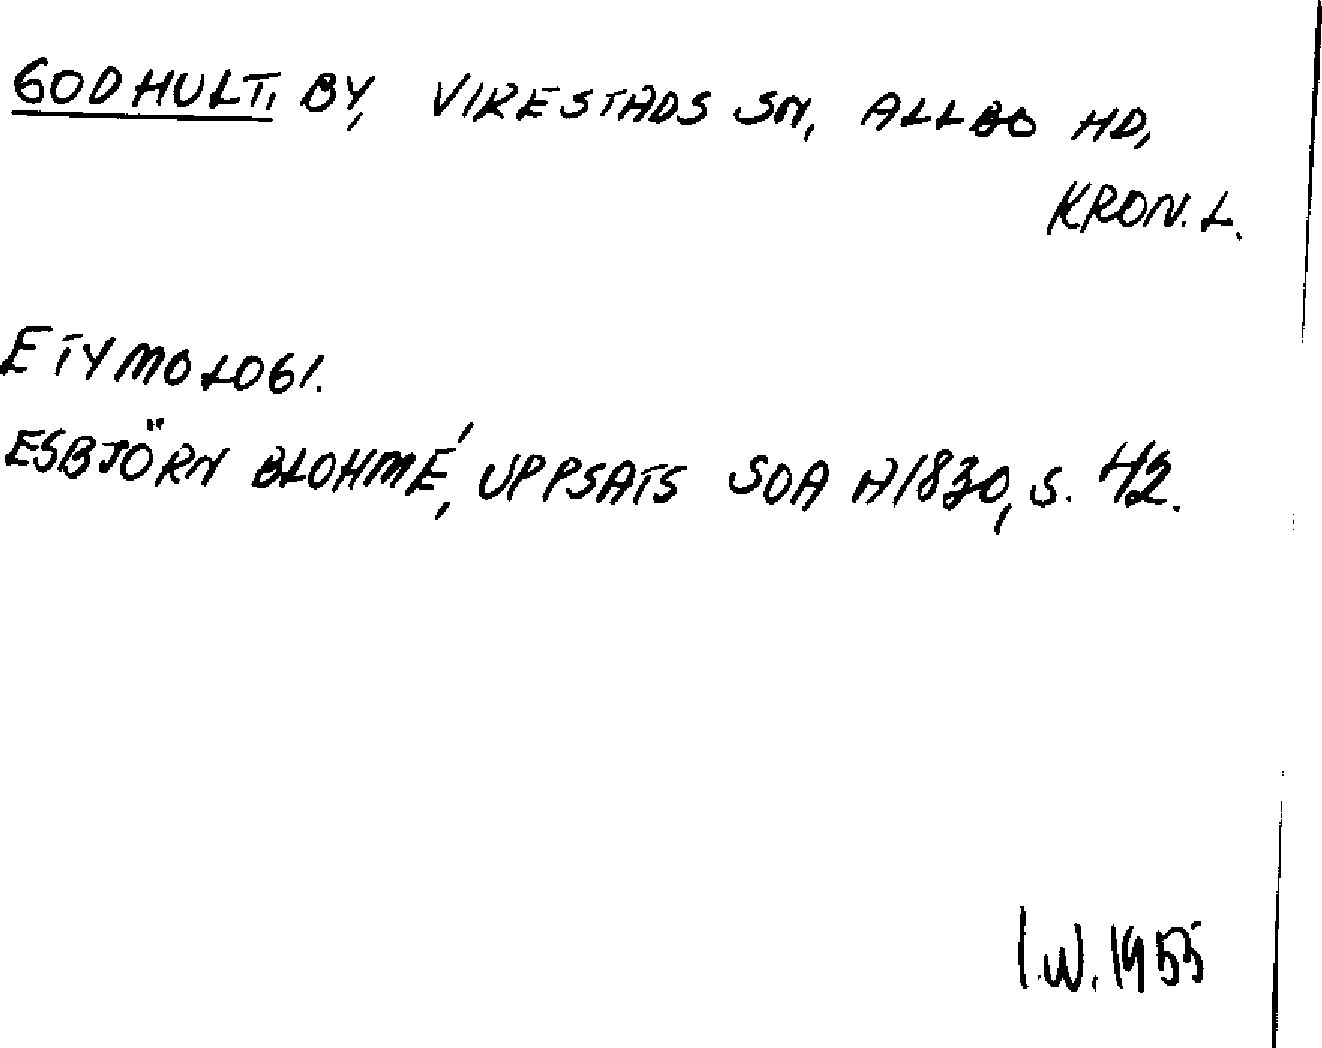 GODHULT, BY, VIRESTADS SN, ALLBO HD,
KRON. L.
ETYMOLOGI.
ESBJÖRN BLOHMÉ, UPPSATS SOA A1830, S. 42.
I.W. 1955